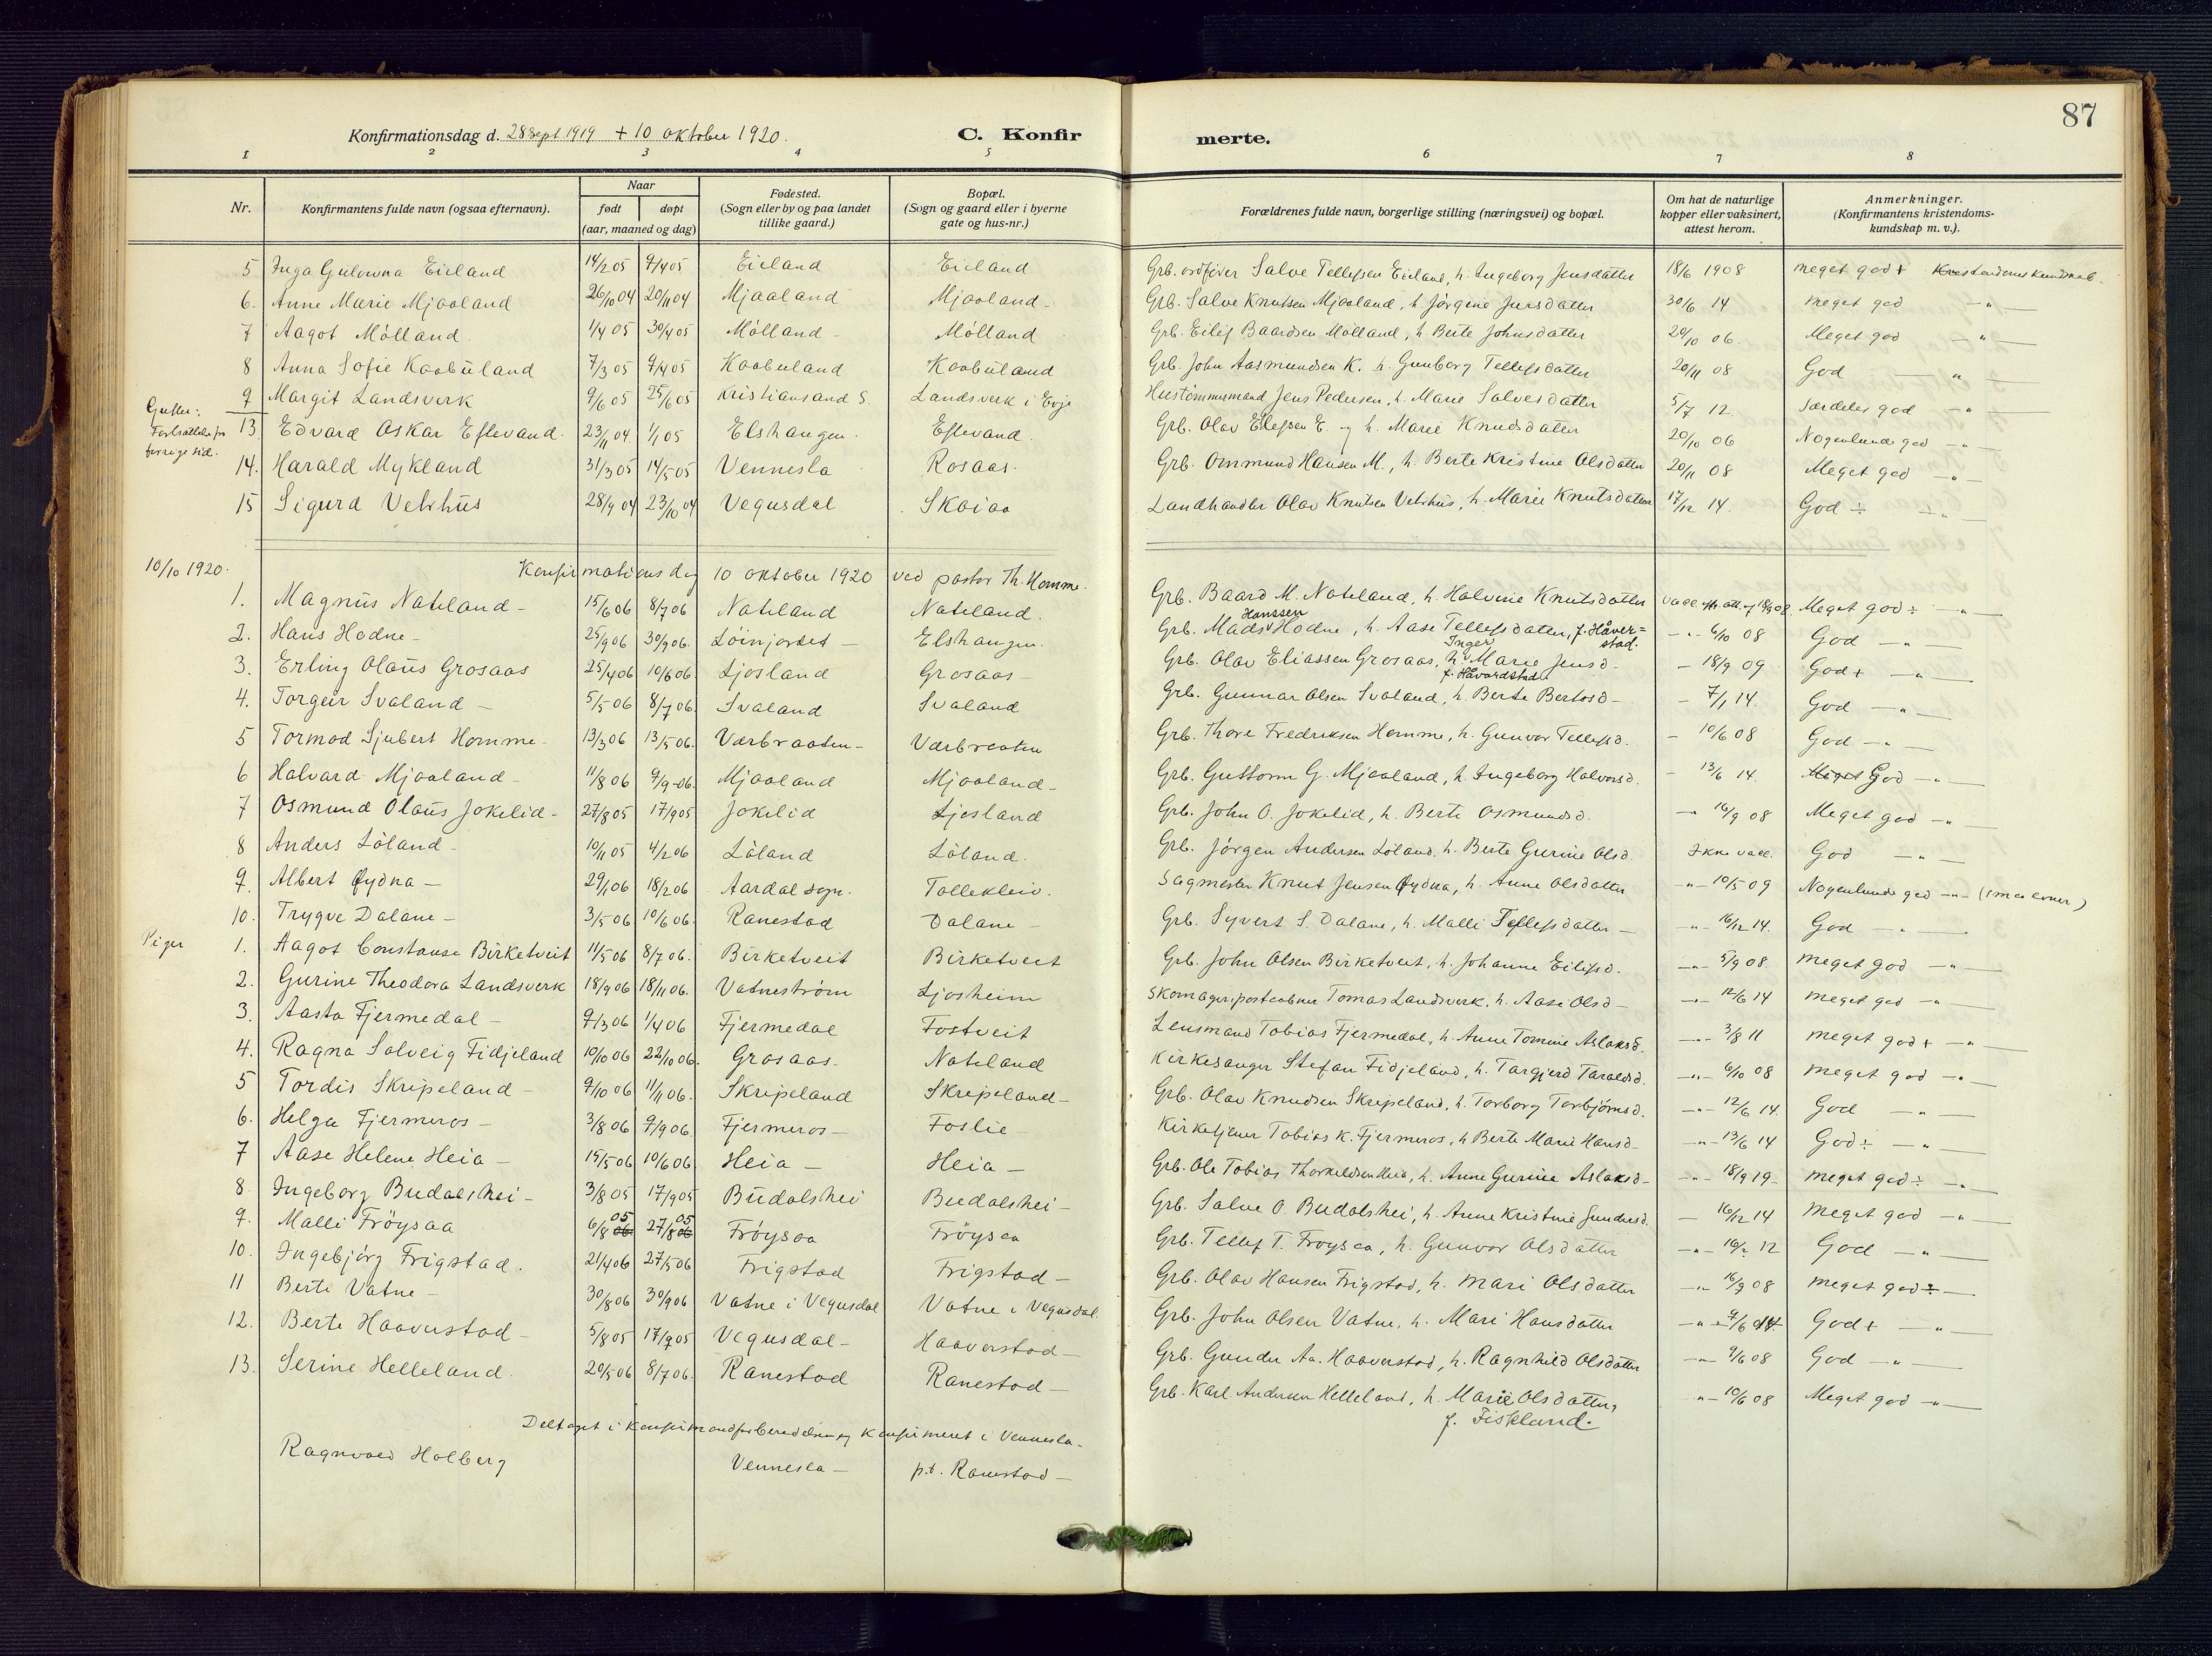 87
Konfirmationsdag d. 28 Sept 1919 + 10 oktober 1920. C. Konfirmerte.
1 2 3 4 5 6 7 8
Nr. Konfirmantens fulde navn (ogsaa efternavn). Naar født døpt (aar, maaned og dag) Fødested. (Sogn eller by og paa landet tillike gaard.) Bopæl. (Sogn og gaard eller i byerne gate og hus-nr.) Forældrenes fulde navn, borgerlige stilling (næringsvei) og bopæl. Om hat de naturlige kopper eller vaksinert, attest herom. Anmerkninger. (Konfirmantens kristendomskundskap m. v.).
5 Inga Gulowna Eieland 14/2 05 9/4 05 Eieland Eieland Grb. ordfører Salve Tellefsen Eieland, h. Ingeborg Jensdatter 18/6 1908 meget god + Kristendomskundskab.
6. Anne Marie Mjaaland 26/10 04 20/11 04 Mjaaland Mjaaland - Grb. Salve Knutsen Mjaaland, h Jørgine Jensdatter 30/6 14 meget god - " -
7 Aagot Mölland 1/4 05 30/4 05 Mölland - Mölland Grb. Eilif Baardsen Mölland, h. Berte Johnsdatter 20/10 06. Meget god - " -
8 Anna Sofie Kaabuland 7/3 05 9/4 05 Kaabuland Kaabuland Grb. John Aasmundsen K. h. Gunborg Tellefsdatter 20/11 08 God - " -
9 Margit Landsverk 9/6 05 25/6 05 Kristiansand S. Landsverk i Evje Hustömmermand Jens Pedersen, h. Marie Salvesdatter 5/7 12. Særdeles god - "
Gutter: Fortsættelse fra forrige sid.
13 Edvard Oskar Eftevand. 23/11 04. 1/1 05 Elshaugen. Eftevand. Grb. Olav Ellefsen E. og h. Marie Knudsdatter 20/10 06 Nogenlunde god - " -
14. Harald Mykland 31/3 05 14/5 05 Vennesla Rosaas. Grb. Ommund Hansen M., h. Berte Kristine Olsdatter 20/11 08 Meget god - " -
15 Sigurd Vehrhus 28/9 04 23/10 04 Vegusdal Skaiaa Landhandler Olav Knutsen Vehrhus, h. Marie Knutsdatter 17/12 14. God ÷ - " -
10/10 1920. Konfirmationsdag 10 oktober 1920 ved pastor Th. Homme.
1. Magnus Nateland - 15/6 06 8/7 06 Nateland Nateland. Grb. Baard M. Nateland, h. Halvine Knutsdatter Meget god ÷ - " -
2. Hans Hodne - 25/9 06 30/9 06. Löinjordet - Elshaugen. Grb. Mads Hanssen Hodne, h. Aase Tellefsdatter, f. Håverstad. - " - 6/10 08 God - " -
3. Erling Olaus Grosaas 25/4 06 10/6 06 Ljosland Grosaas - Grb. Olav Eliassen Grosaas, h. Inger Marie Jensd - f. Håvardstad - 18/9 09 God + - " -
4. Torgeir Svaland - 5/5 06 8/7 06. Svaland Svaland Grb. Gunnar Olsen Svaland, h. Berte Bertesd - - 7/1 14. God - " -
5 Tormod Sjubert Homme - 13/3 06 13/5 06. Værbraaten - Værbraaten Grb. Thore Fredriksen Homme, h. Gunvor Tellefsd. - 10/6 08 God - " -
6 Halvard Mjaaland - 11/8 06 9/9 - 06. Mjaaland Mjaaland - Grb. Guttorm G. Mjaaland, h. Ingeborg Halvorsd. - 13/6 14. Meget God - " -
7 Osmund Olaus Jokelid - 27/8 05 17/9 05 Jokelid Ljosland Grb. John O. Jokelid, h. Berte Osmundsd. - 16/9 08 Meget god - " -
8 Anders Löland - 10/11 05 4/2 06 Löland Löland. Grb. Jørgen Andersen Löland. h. Berte Gurine Olsd. Ikke vacc. God - " -
9. Albert Øydna - 29/1 06 18/2 06 Aardal sogn. Tollekleiv. Sagmester Knut Jensen Øydna, h. Anne Olsdatter - " - 10/5 09 Nogenlunde god - " - (smaa evner)
10. Trygve Dalane - 3/5 06 10/6 06 Ranestad Dalane - Grb. Syvert S. Dalane, h. Malli Tellefsdatter - - " - 16/12 14. God - " -
Piger
1. Aagot Constanse Birketveit 11/5 06 8/7 06. Birketveit Birketveit Grb. John Olsen Birketveit, h. Johanne Eilifsd. - " - 5/9 08. Meget god - " -
2. Gurine Theodora Landsverk 18/9 06 18/11 06. Vatneström Ljosheim Skomager, postaabner Tomas Landsverk, h. Aase Olsd - - " - 12/6 14 Meget god - " -
3. Aasta Fjermedal - 9/3 06 1/4 06 Fjermedal Fostveit Lensmand Tobias Fjermedal, h. Anne Tomine Aslaksd. - " - 3/8 11 meget god + - " -
4. Ragna Solveig Fidjeland 10/10 06 22/10 06. Grosaas. Nateland Kirkesanger Stefan Fidjeland, h. Targjerd Taraldsd. - " - 6/10 08 Meget god - " -
5 Tordis Skripeland - 9/10 06 11/11 06. Skripeland Skripeland - Grb. Olav Knudsen Skripeland, h. Torborg Torbjörnsd. - " - 12/6 14. God - " -
6. Helga Fjermeros - 3/8 06 9/9 06. Fjermeros - Foslie - Kirketjener Tobias K. Fjermeros, h Berte Marie Hansd - - " - 13/6 14 God ÷ - " -
7 Aase Helene Heia - 15/5 06 10/6 06 Heia - Heia - Grb. Ole Tobias Thorkildsen Heia, h. Anne Gurine Aslaksd - - " - 18/9 19 - meget god ÷ - " -
8. Ingeborg Budalshei - 3/8 05 17/9 05 Budalshei Budalshei - Grb. Salve O. Budalshei, h. Anne Kristine Gundersd. - 16/12 14 Meget god - " -
9. Malli Fröysaa 6/8 05 27/8 05 Fröysaa Fröysaa Grb. Tellef T. Fröysaa, h. Gunvor Olsdatter God - " -
10. Ingebjörg Frigstad. 21/4 06 27/5 06 Frigstad Frigstad - Grb. Olav Hansen Frigstad, h. Mari Olsdatter - " - 16/9 08 meget god ÷ -
11 Berte Vatne - 30/8 06 30/9 06 Vatne i Vegusdal Vatne i Vegusdal Grb. John Olsen Vatne, h. Mari Hansdatter God + - " -
12. Berte Haaverstad - 5/8 05 17/9 05 Vegusdal - Haaverstad - Grb. Gunder Aa. Haaverstad, h. Ragnhild Olsdatter - " - 9/6 08 God - " -
13. Serine Helleland. 20/5 06 8/7 06. Ranestad Ranestad - Grb. Karl Andersen Helleland, h. Marie Olsdatter, f. Fiskland. - " - 10/6 08 Meget god - " -
Deltaget i konfirmandforberedelsen og konfirmeret i Vennesla.
Ragnvald Holberg Vennesla - p.t. Ranestad -